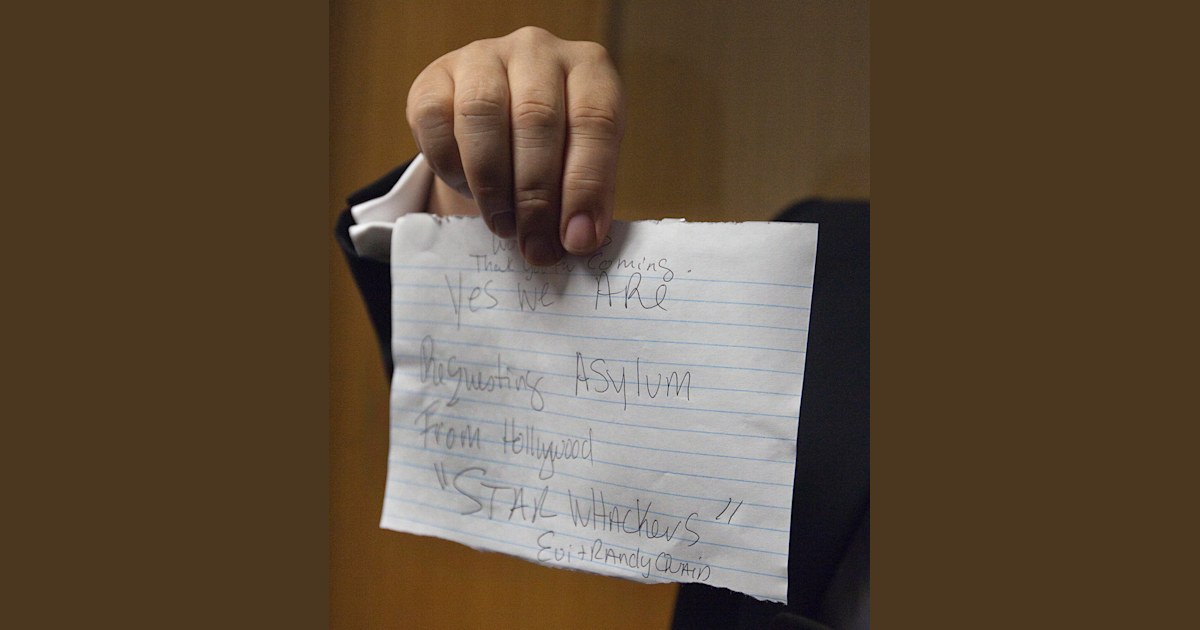 Thank you coming.
Yes We ARe
Requesting Asylum
From Hollywood
"STAR WHACkers"
Evi + RAndy QUAiD